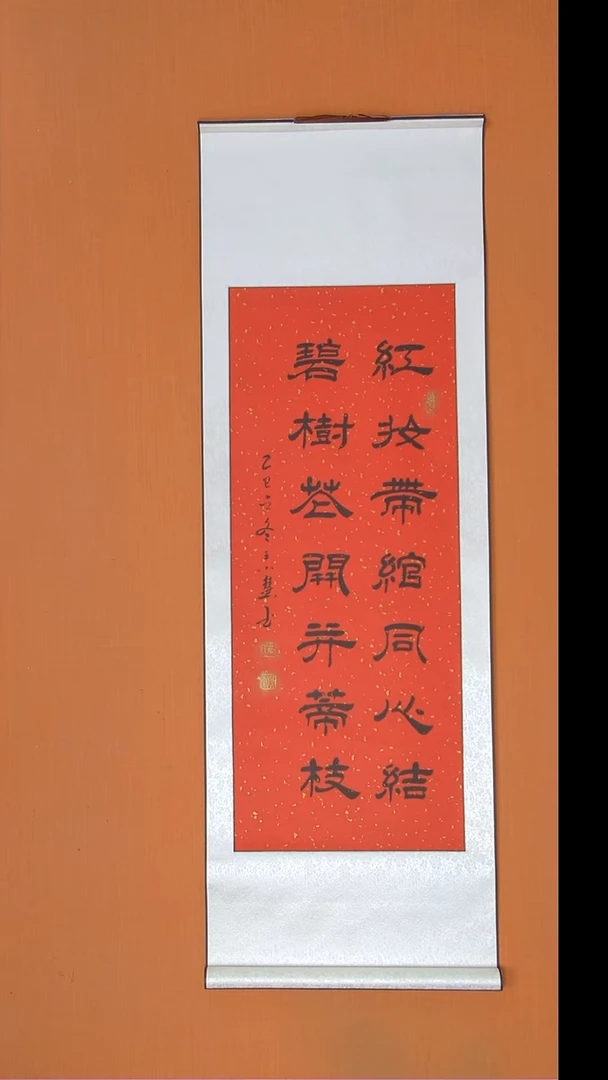 紅妝帶綰同心結
碧樹花開并蒂枝
乙巳之冬